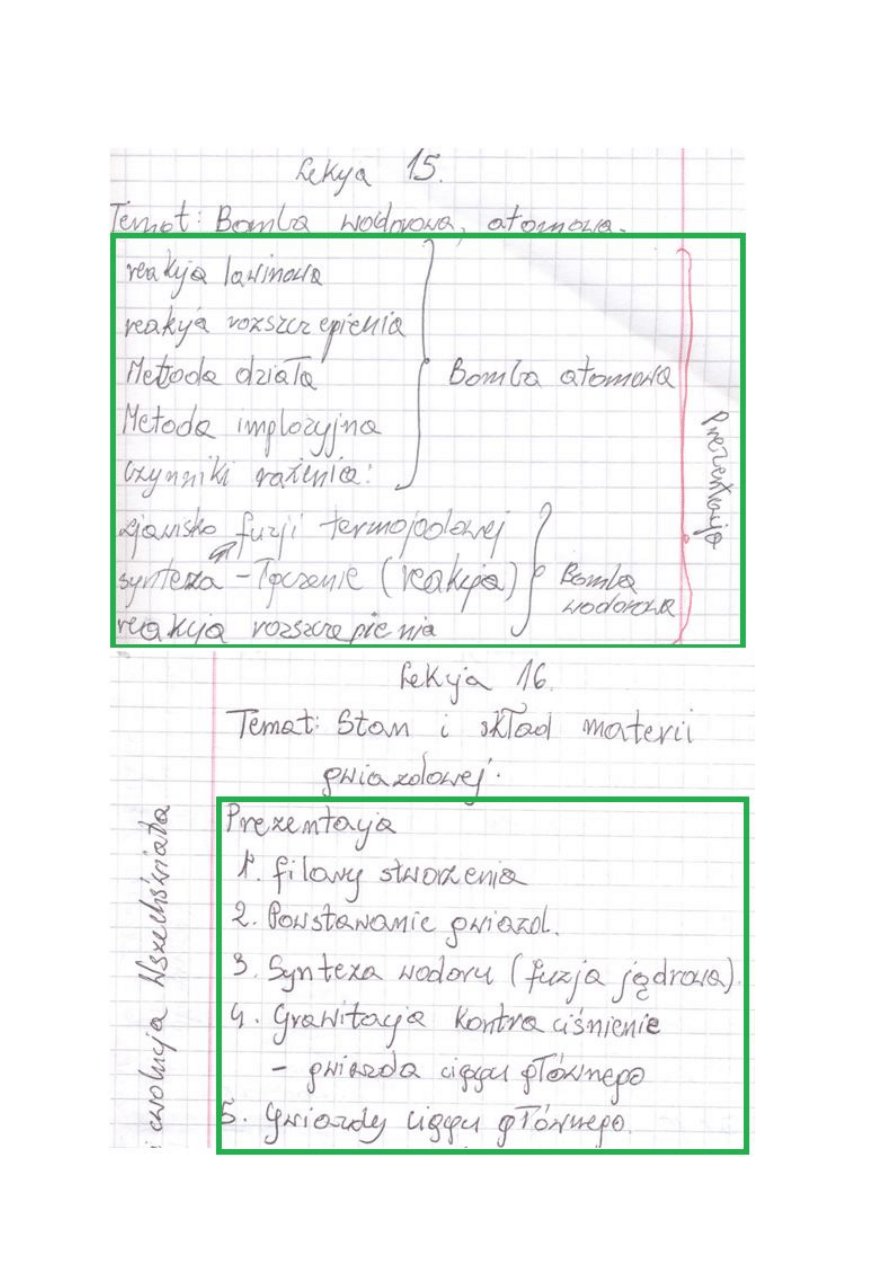 Lekcja 15.
Temat: Bomba wodorowa, atomowa.
reakcja lawinowa
reakcja rozszczepienia
Metoda działa
Bomba atomowa
Metoda implozyjna
czynniki rażenia:
Prezentacja
zjawisko fuzji termojądowej
synteza - łączenie (reakcja)
Bomba
wodorowa
reakcja rozszczepienia
Lekcja 16.
Temat: Stan i skład materii
gwiazdowej.
Prezentacja
1. filary stworzenia
2. Powstawanie gwiazd.
3. Synteza wodoru (fuzja jądrowa).
4. Grawitacja kontra ciśnienie
- gwiazda ciągu głównego
5. Gwiazdy ciągu głównego.
i ewolucja Wszechświata